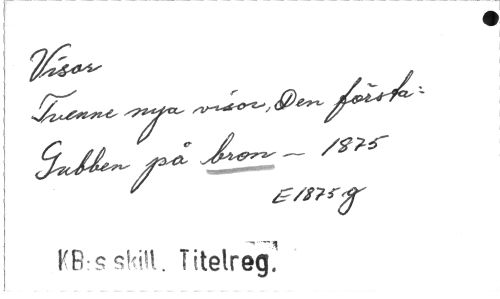 Visor
Tvenne nya visor, Den första:
Gubben på bron — 1875
E1875g
KB:s skill. Titelreg.